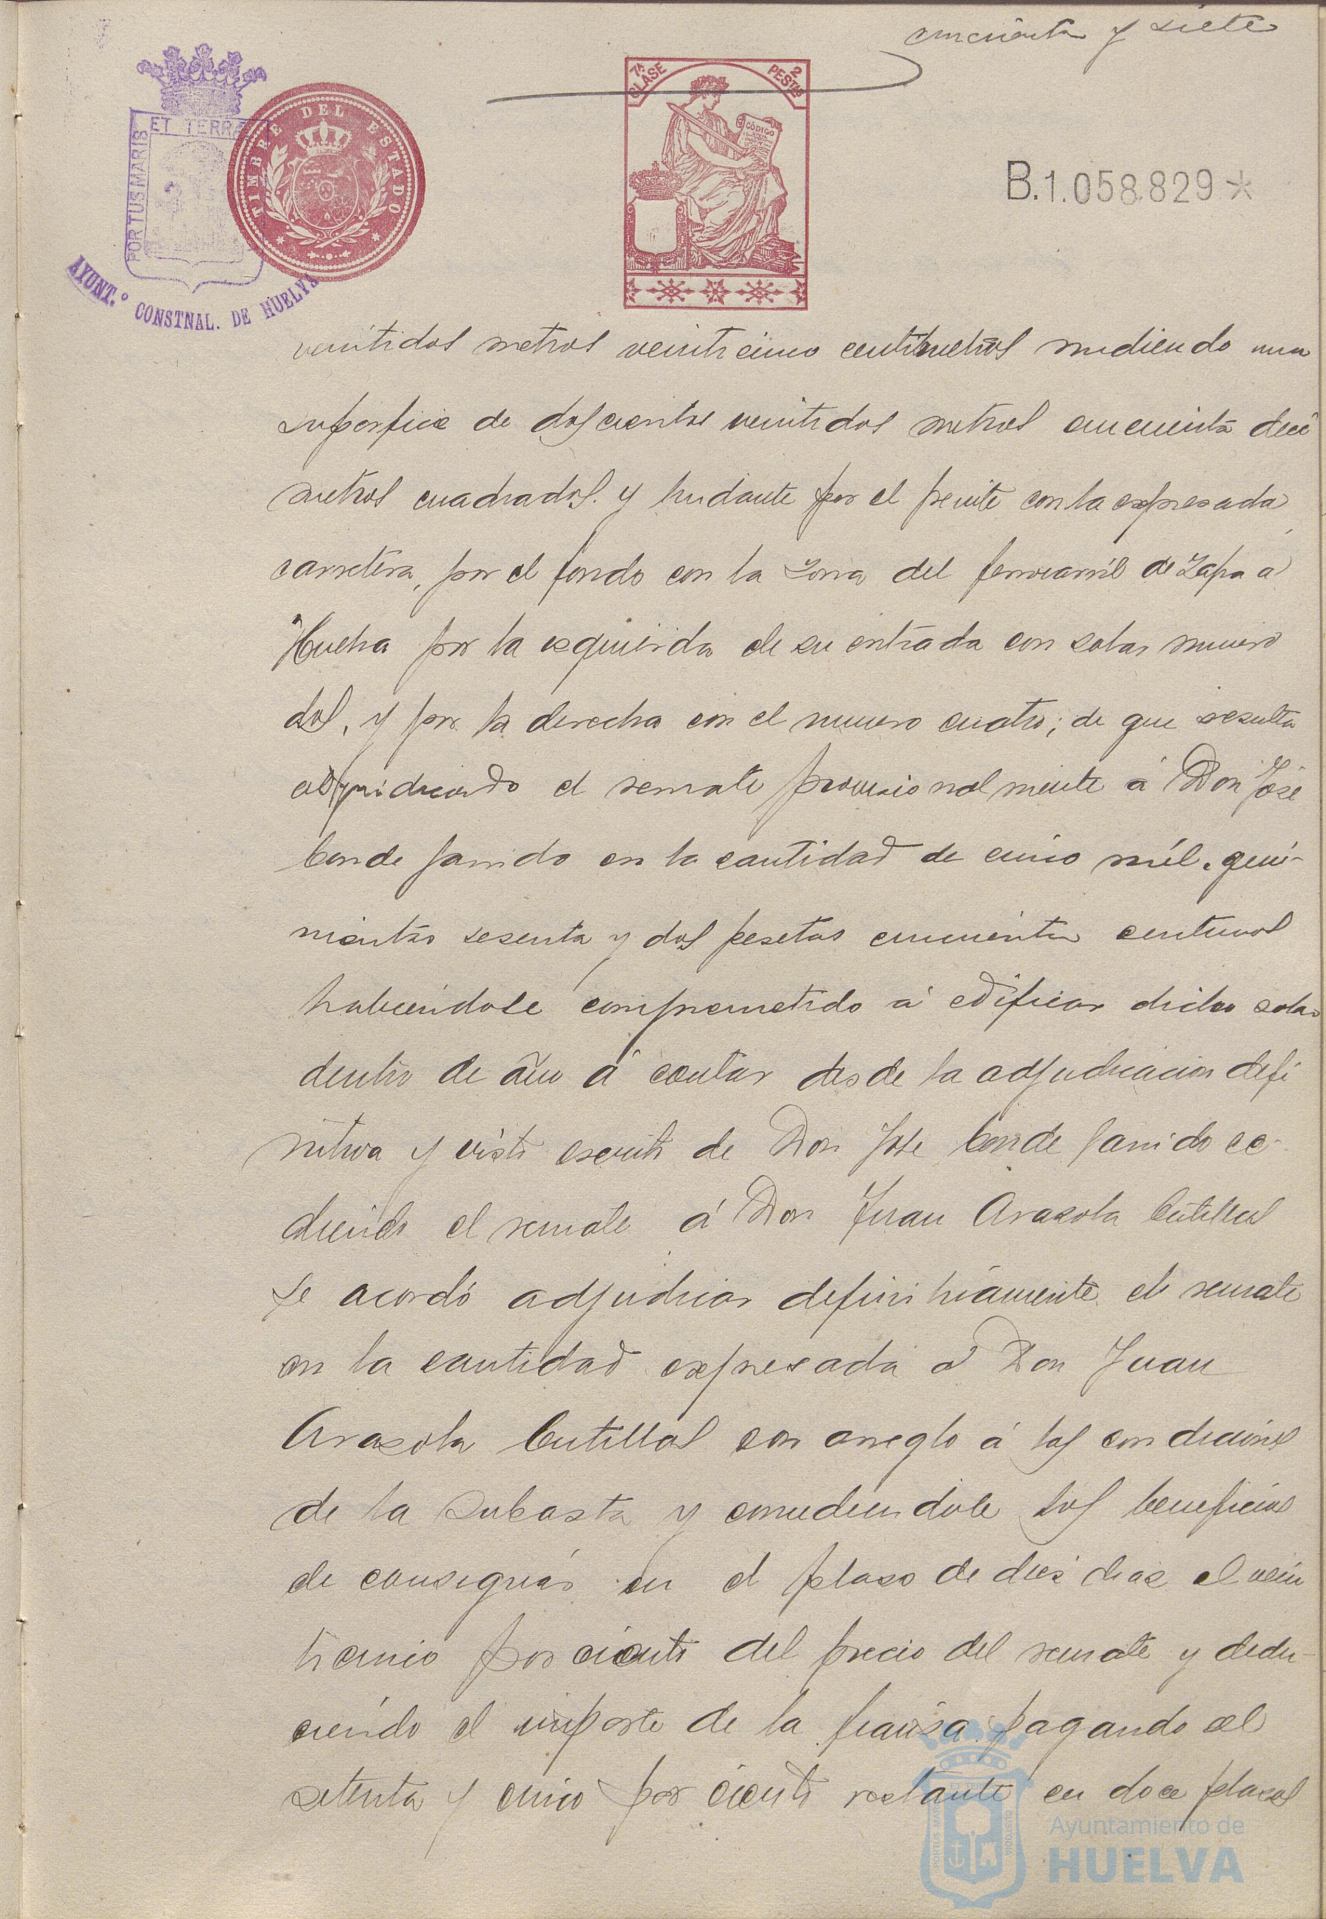 cincuenta y siete
7ª CLASE
2 PESTAS
CÓDIGO
PORTUS MARIS ET TERRÆ
TIMBRE DEL ESTADO
B.1.058.829*
AYUNT.º CONSTNAL. DE HUELVA
veintidos metros veinticinco centimetros midiendo una
superficie de doscientos veintidos metros cincuenta deci
metros cuadrados. y lindante por el frente con la expresada
carretera, por el fondo con la zona del ferrocarril de Zafra a
Huelva por la izquierda de su entrada con solar numero
dos, y por la derecha con el numero cuatro; de que resulta
adjudicado el remate provisionalmente á Don José
Conde Garrido en la cantidad de cinco mil quin-
nientas sesenta y dos pesetas cincuenta centimos
habiendose comprometido á edificar dicho solar
dentro de año á contar desde la adjudicacion defi
nitiva y visto escrito de Don José Conde Garrido ce-
diendo el remate á Don Juan Arazola Cutillas
se acordó adjudicar definitivamente el remate
en la cantidad expresada á Don Juan
Arazola Cutillas con arreglo á las condiciones
de la subasta y concediendole los beneficios
de consignar en el plazo de diez dias el vein
ticinco por ciento del precio del remate y dedu-
ciendo el importe de la fianza pagando el
setenta y cinco por ciento restante en doce plazos
Ayuntamiento de
HUELVA